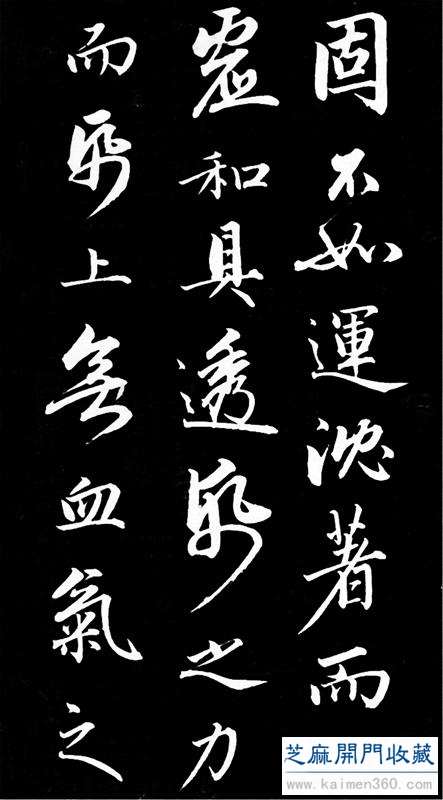 固不如運沈著而
虛和具透紙之力
而紙上無血氣之
芝麻開門收藏
www.kaimen360.com